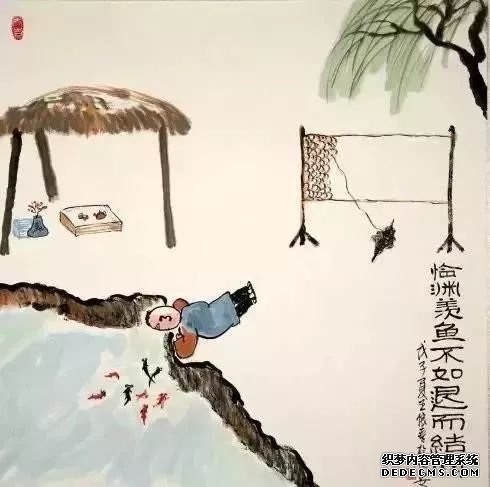 临渊羡鱼不如退而结
戊子夏王
织梦内容管理系统
DEDECMS.COM